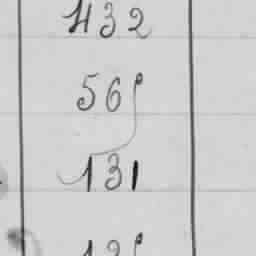 432
569
131